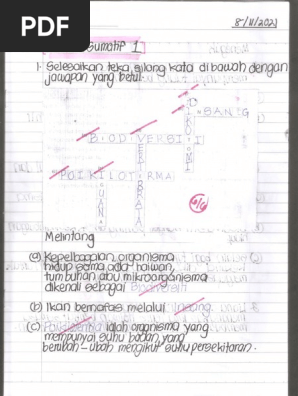 PDF
8/11/2021
Sumatif 1
1. Selesaikan teka silang kata di bawah dengan
jawapan yang betul
INSANG
BIODIVERSITI
POIKILOTERMA
6/6
Melintang
(a) Kepelbagaian organisma
hidup sama ada haiwan,
tumbuhan atau mikroorganisma
dikenali sebagai Biodiversiti
(b) Ikan bernafas melalui insang.
(c) Poikiloterma ialah organisma yang
mempunyai suhu badan yang
berubah-ubah mengikut suhu persekitaran.